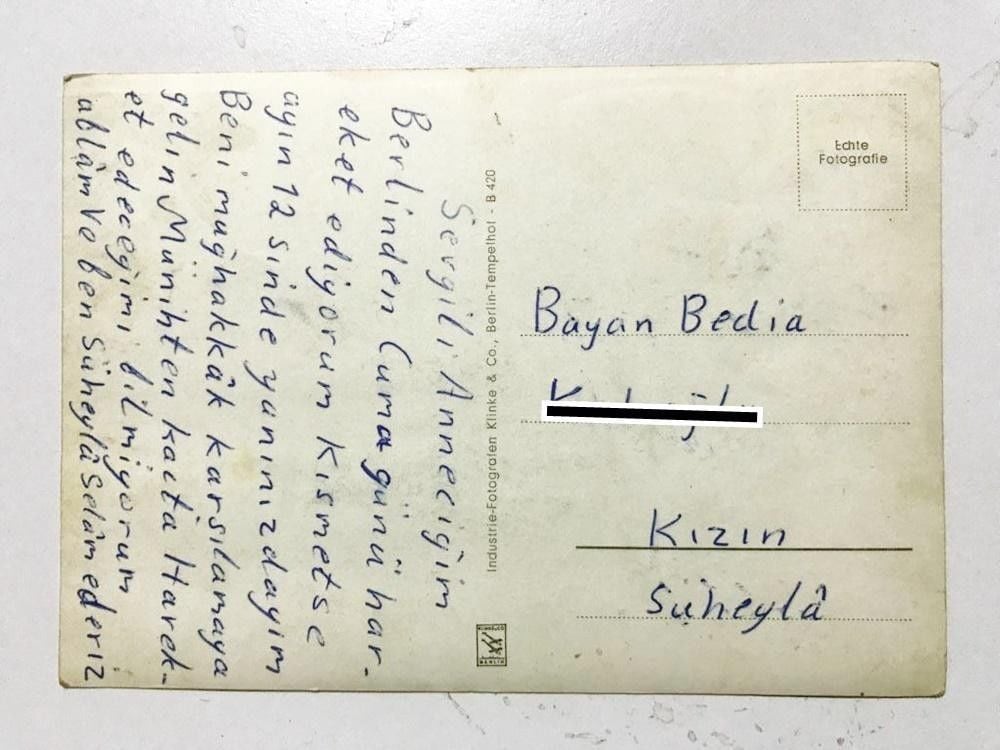 Sevgili Annecigim
Berlinden Cuma günü har-
eket ediyorum kısmetse
ayın 12 sinde yanınızdayım
Beni muğhakkâk karsılamaya
gelin Münihten kacta Harek-
et edeceğimi bilmiyorum
ablam ve ben süheylâ Selâm ederiz
Industrie-Fotografen Klinke & Co., Berlin-Tempelhof - B 420
KLINKE & CO
BERLIN
Echte
Fotografie
Bayan Bedia
Kızın
Süheylâ